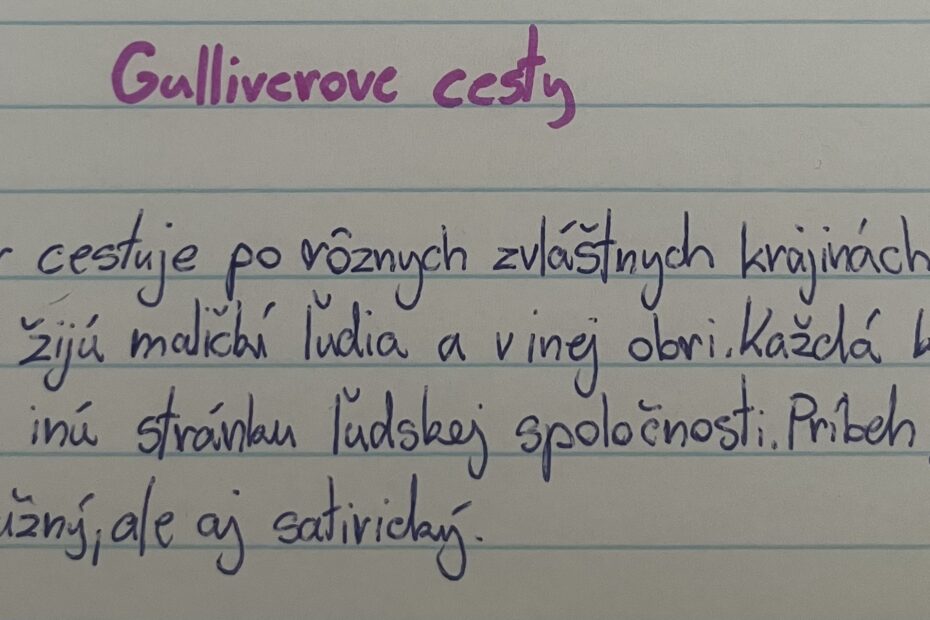 Gulliverove cesty
cestuje po rôznych zvláštnych krajinách
žijú maličkí ľudia a v inej obri. Každá
inú stránku ľudskej spoločnosti. Príbeh
ale aj satirický.